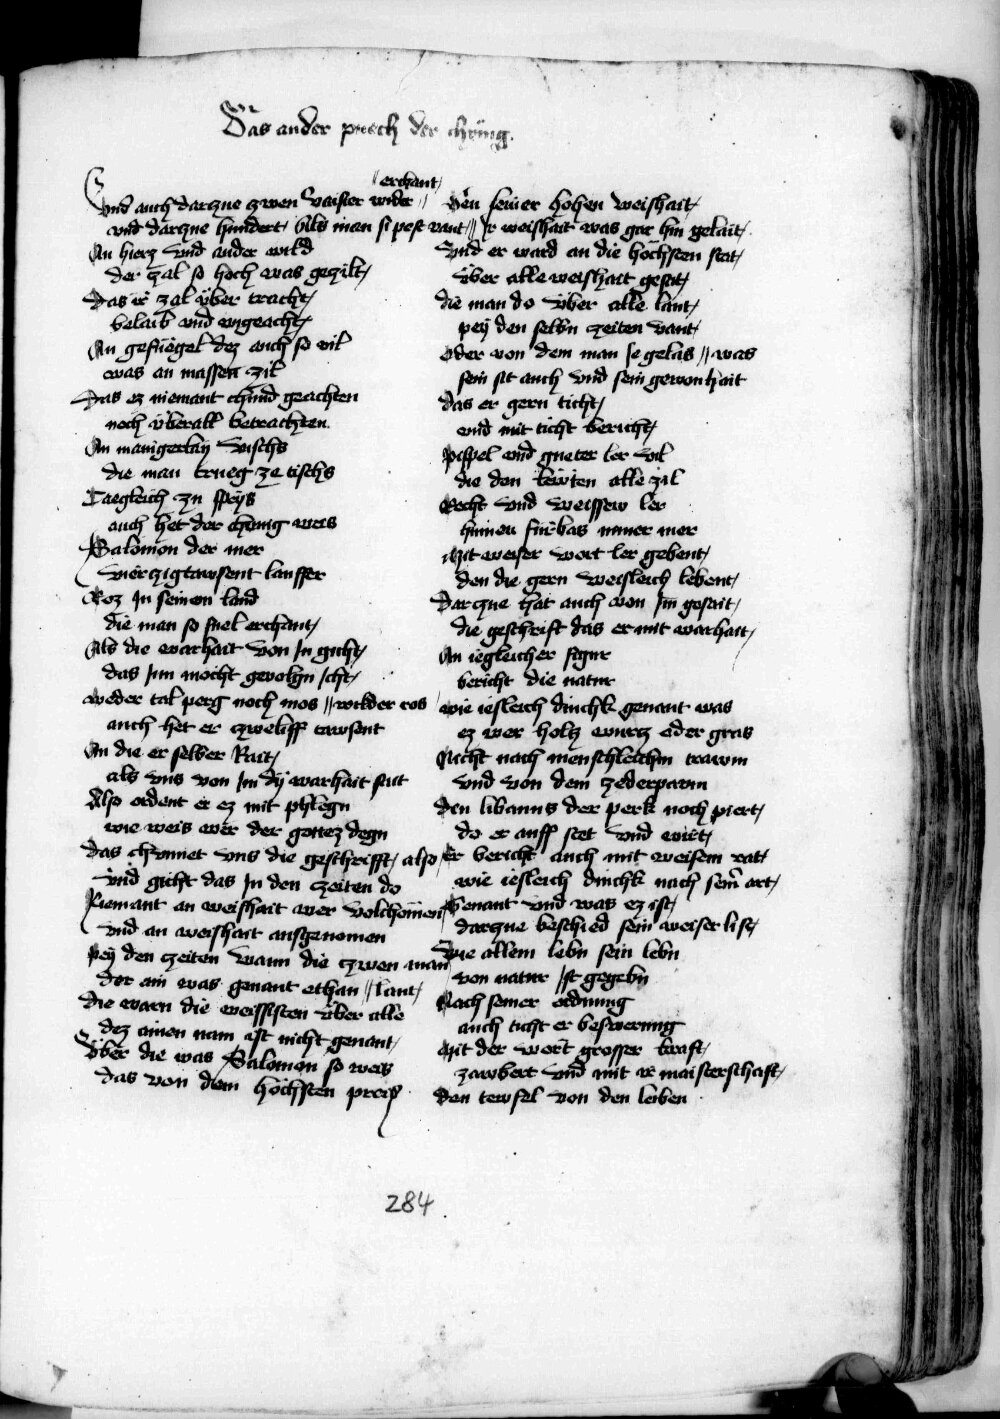 Das ander puech der chünig.
erchant
Vnd auch darzue zwen vaister wider
vnd darzue hundert Als man si pest vant
An hierz vnd ander wild
der zal so hoch was gezilt
Das ir zal über tracht
belaib vnd vngeacht
An gefüegel dez auch so vil
was an massen zil
Das ez niemant chund geachten
noch überall betrachten
An manigerlay vischs
die man trueg ze tischs
Taegleich zu speys
auch het der chünig weis
Salomon der mer
vierzigtawsent lauffer
Roz Jn seinem land
die man so snel erchant
Als die warhait von Jn gicht
das Jm mocht gevolgn icht
weder tal perg noch mos wilder ros
auch het er zweliff tawsent
An die er selber Rait
als vns von Jm dy warhait sait
Also ordent er ez mit phlegn
wie weis wer der gottez degn
das chunnet vns die geschrifft also
vnd gicht das Jn den zeiten do
Niemant an weishait wer volchomen
vnd an weishait ausgenomen
pey den zeiten wann die zwen man
der ain was genant ethan lant
die warn die weissisten über alle
dez ainen nam ist nicht genant
Über die was Salomon so weis
das von dem höchsten preis
Den seiner hohen weishait
Jr weishait was gar hin gelait
Vnd er ward an die höchsten stat
über alle weishait gesat
die man do über alle lant
pey den selbn zeiten vant
oder von dem man ie gelas was
sein sit auch vnd sein gewonhait
das er gern ticht
vnd mit ticht bericht
peispel vnd gueter ler vil
die den lewten alle zil
Recht vnd weissew ler
hinnen fürbas immer mer
Mit weiser wort ler gebent
den die gern weisleich lebent
Darzue hat auch von Jm gesait
die geschrift das er mit warhait
An iegleicher figur
bericht die natur
wie iesleich dinchk genant was
ez wer holtz wurz oder gras
Nicht nach menschleichm trawm
vnd von dem zederpawm
den libanus der perk noch piert
do er auff stet vnd wiert
er bericht auch mit weisem rat
wie iesleich dinchk nach seiner art
Genant vnd was ez ist
darzue beschied sein weiser list
Wie allem lebn sein lebn
von natur ist gegebn
Nach seiner ordnung
auch ticht er beswerung
Mit der wort grosser kraft
zawbert vnd mit ir maisterschaft
Den tewfel von den leiben
284